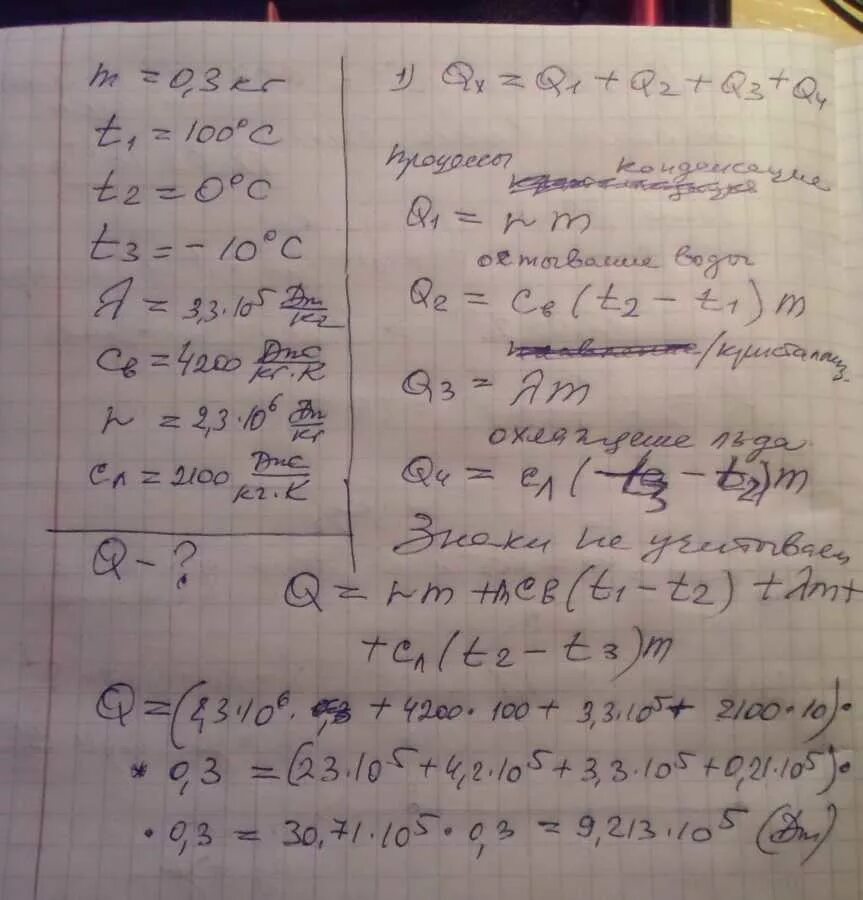 m = 0,3 кг
t₁ = 100°C
t₂ = 0°C
t₃ = -10°C
λ = 3,3·10⁵ Дж/кг
Cв = 4200 Дж/кг·К
r = 2,3·10⁶ Дж/кг
Cл = 2100 Дж/кг·К
Q - ?
1) Qx = Q₁ + Q₂ + Q₃ + Q₄
Процессы
конденсация
Q₁ = rm
остывание воды
Q₂ = Cв(t₂ - t₁)m
/кристаллиз.
Q₃ = λm
охлаждение льда
Q₄ = Cл(t₃ - t₂)m
Знаки не учитываем
Q = rm + mCв(t₁ - t₂) + λm +
+ Cл(t₂ - t₃)m
Q = (2,3·10⁶ · + 4200·100 + 3,3·10⁵ + 2100·10)·
* 0,3 = (23·10⁵ + 4,2·10⁵ + 3,3·10⁵ + 0,21·10⁵)·
· 0,3 = 30,71·10⁵ · 0,3 = 9,213·10⁵ (Дж)